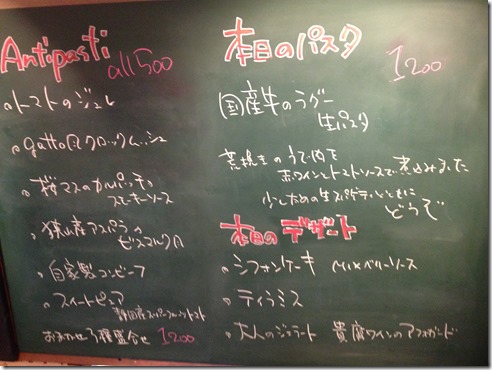 Antipasti all 500
トマトのジュレ
gatto風クロックムッシュ
桜マスのカルパッチョ
スモーキーソース
狭山産アスパラの
ビスマルク風
自家製コンビーフ
スイートピュア
静岡産スーパーフルーツトマト
おまかせ3種盛合せ 1200
本日のパスタ 1200
国産牛のラグー
生パスタ
荒挽きのうで肉を
赤ワインとトマトソースで煮込みました
少し太めの生スパゲティとともに
どうぞ
本日のデザート
シフォンケーキ Mixベリーソース
ティラミス
大人のジェラート 貴腐ワインのアフォガード